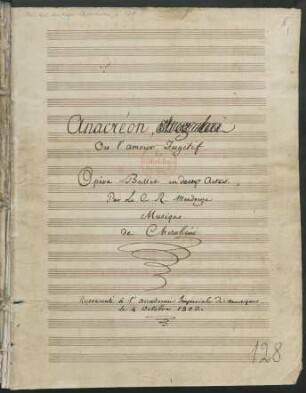 Anacréon,
Ou l'amour Fugitif
Opéra Ballet en deux Actes.
Par Le C. R. Mendouze
Musique
de Cherubini
Représenté à l'académie Impériale de musique
le 4 Octobre 1803.
128